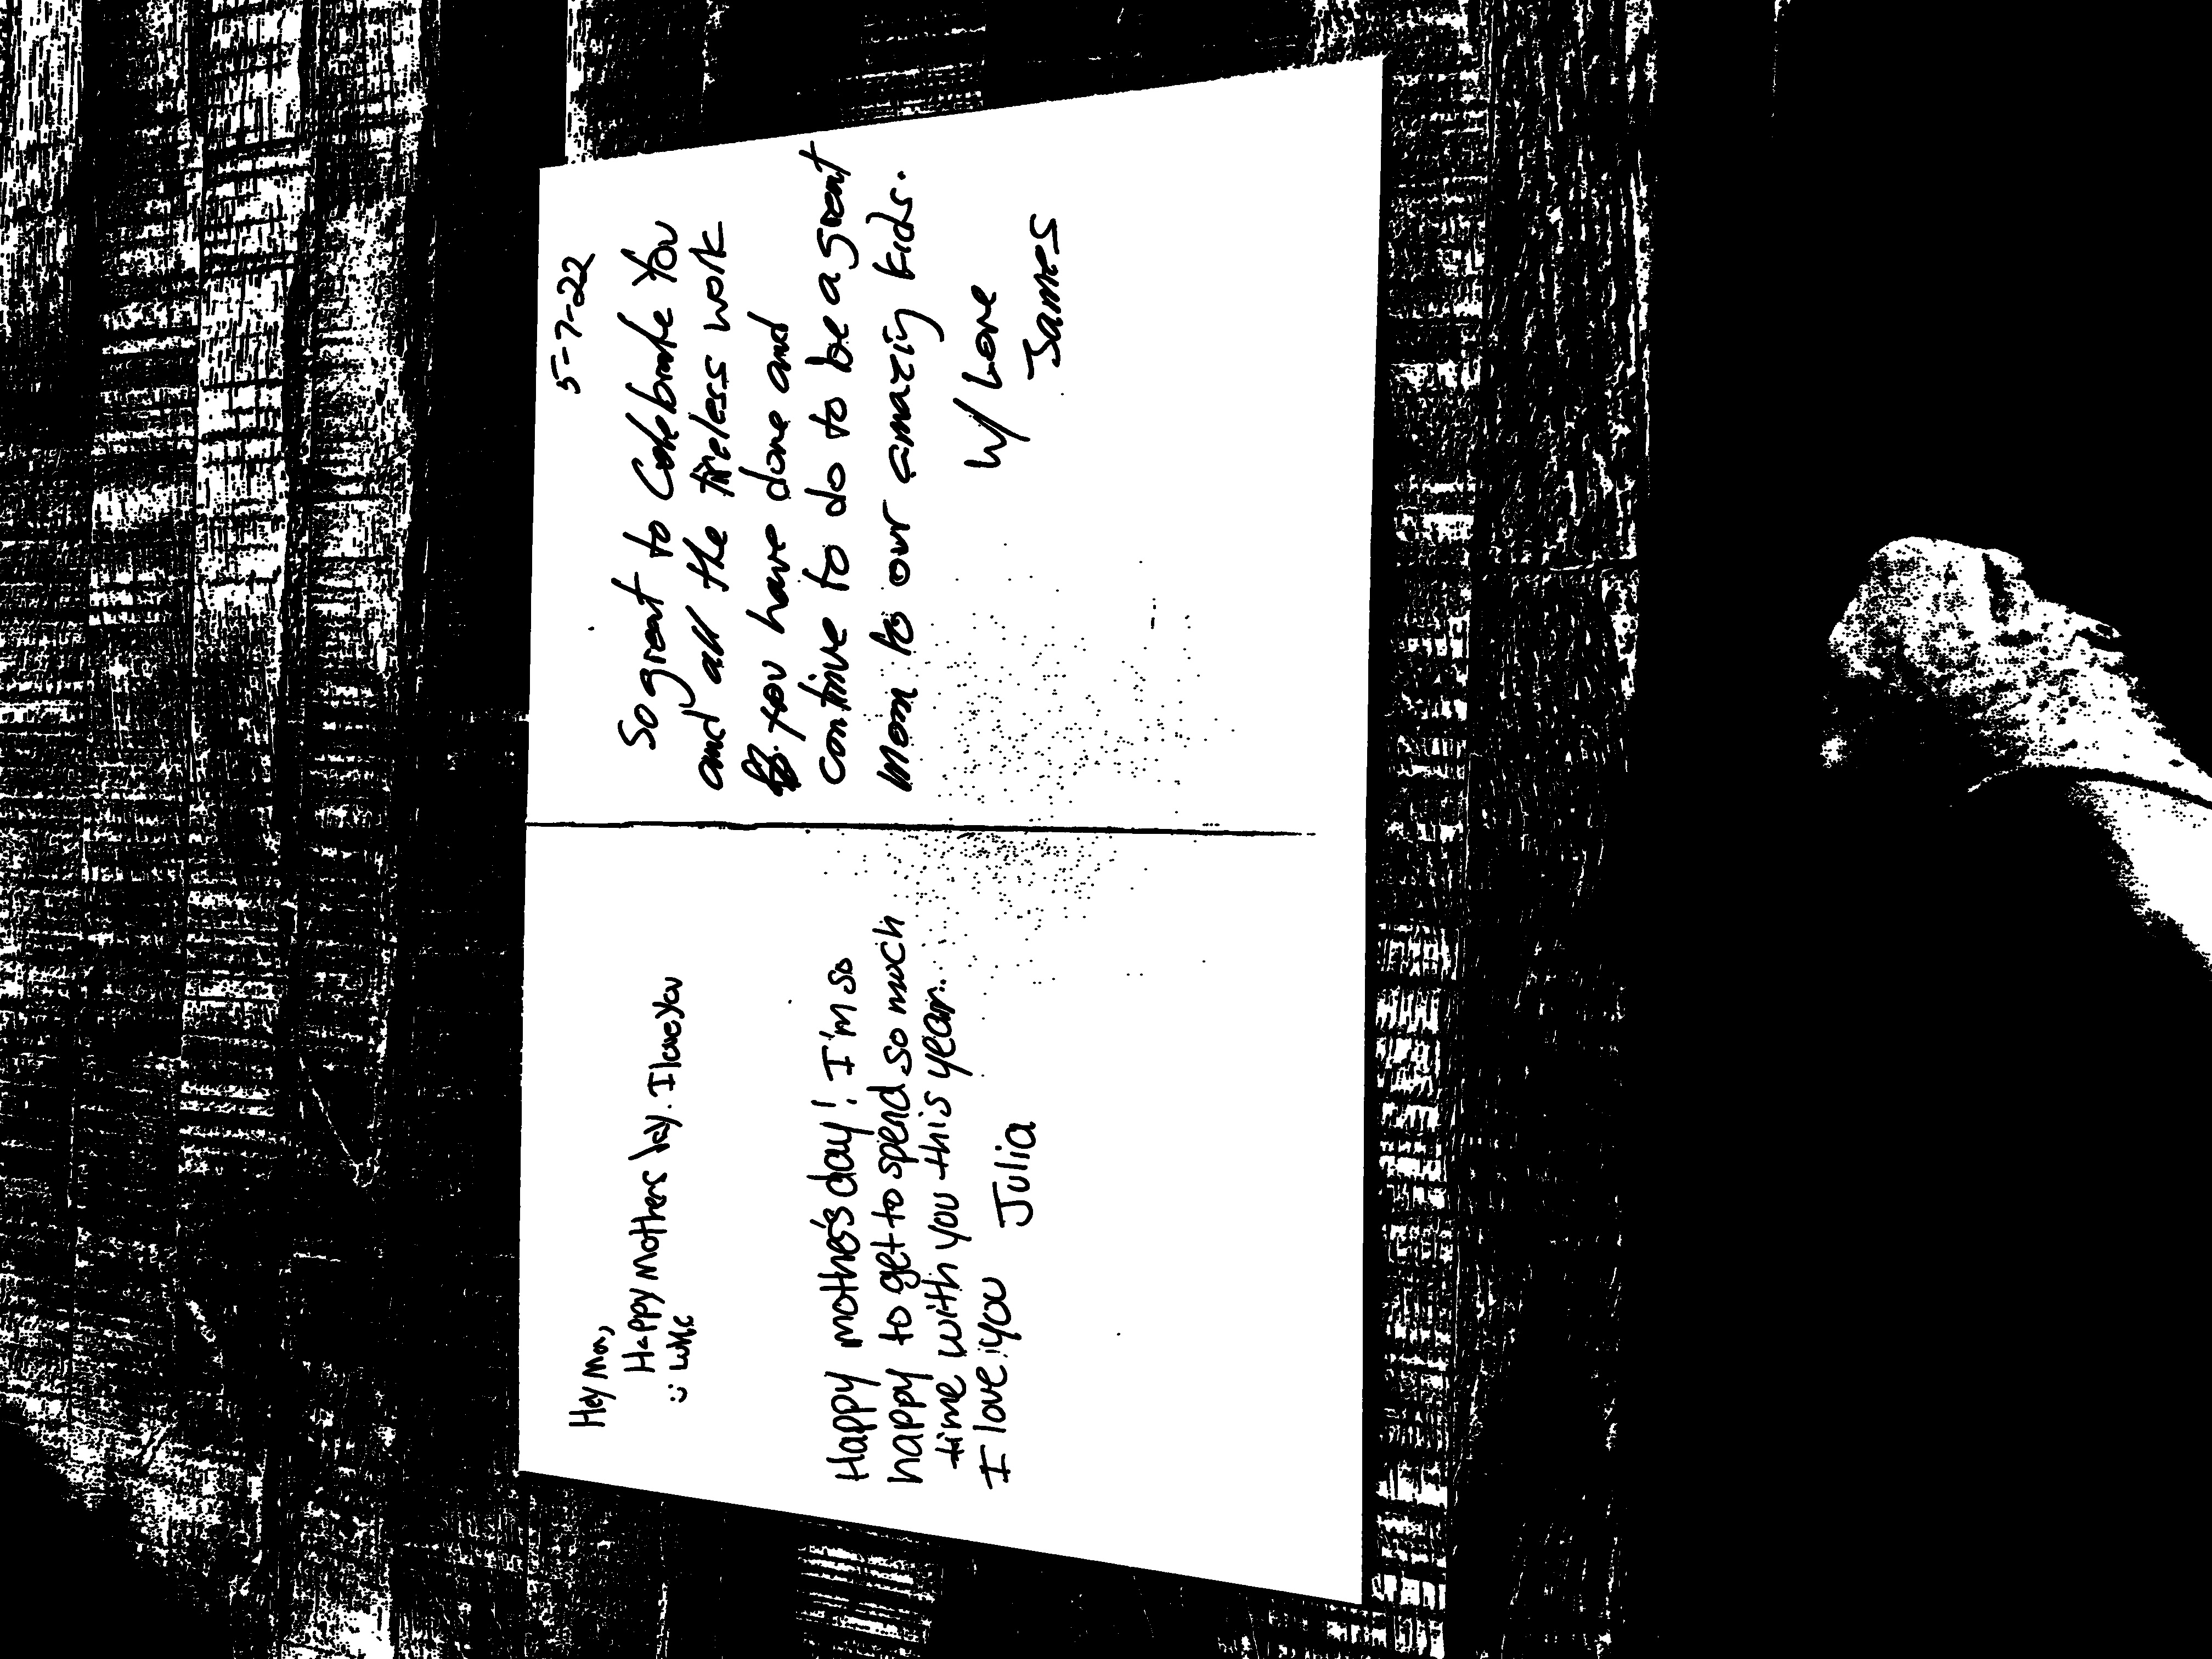 Hey Mom,
Happy Mothers Day. I love you
:)
Happy mothe's day! I'm so
happy to get to spend so much
time with you this year.
I love you Julia
5-7-22
So great to Celebrate You
and all the tireless work
you have done and
continue to do to be a great
Mom to our amazing kids.
W/ Love
James